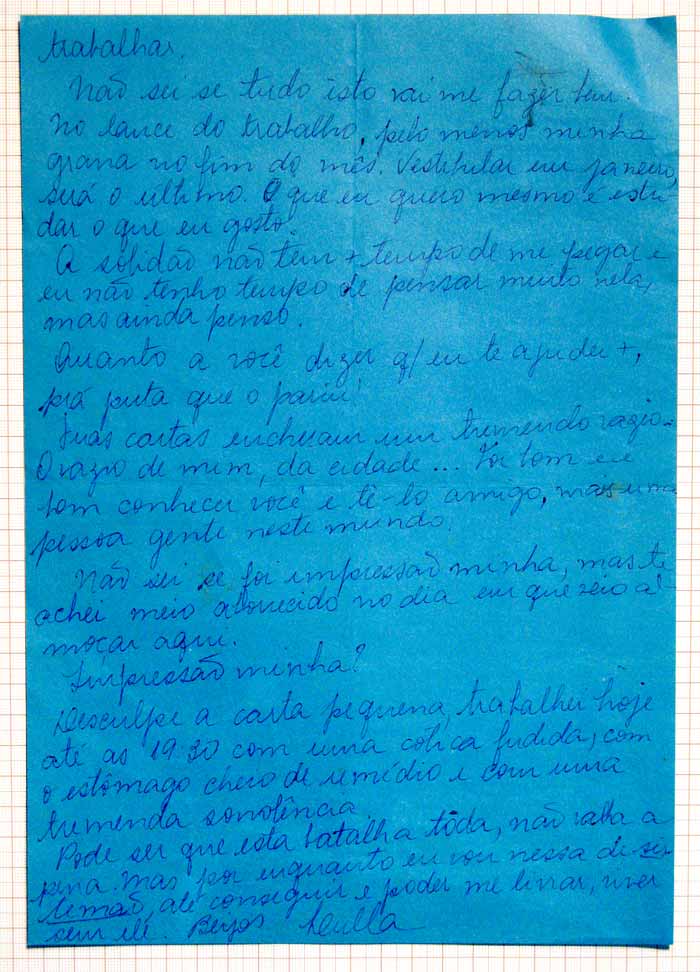 trabalhar.
Não sei se tudo isto vai me fazer bem.
No lance do trabalho, pelo menos minha
grana no fim do mês. Vestibular em janeiro,
será o último. O que eu quero mesmo é estu-
dar o que eu gosto.
A solidão não tem + tempo de me pegar e
eu não tenho tempo de pensar muito nela,
mas ainda penso.
Quanto a você dizer q/ eu te ajudei +,
prá puta que o pariu!
Tuas cartas encheram um tremendo vazio.
O vazio de mim, da cidade ... Foi bom
bom conhecer você e tê-lo amigo, mais uma
pessoa gente neste mundo.
Não sei se foi impressão minha, mas te
achei meio aborrecido no dia em que veio al-
moçar aqui.
Impressão minha?
Desculpe a carta pequena, trabalhei hoje
até as 19.30 com uma cólica fudida, com
o estômago cheio de remédio e com uma
tremenda sonolência.
Pode ser que esta batalha tôda, não valha a
pena. Mas por enquanto eu vou nessa de sis-
temão, até conseguir e poder me livrar, viver
sem ele. Beijos